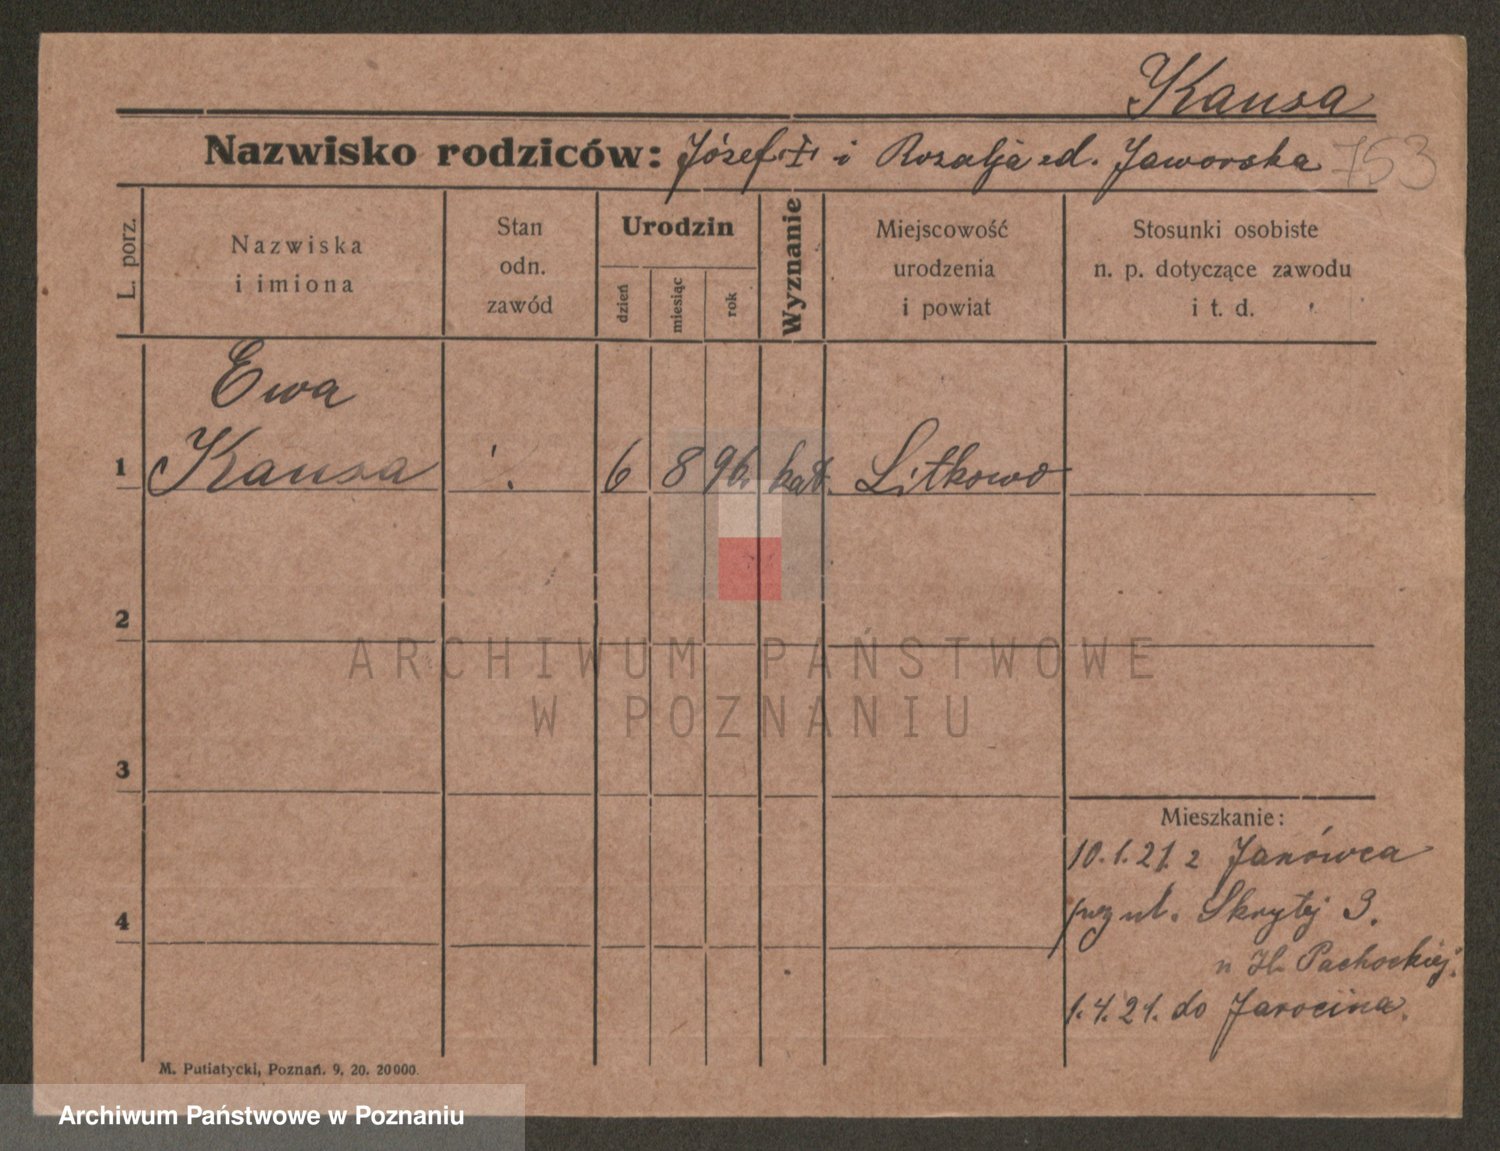 Kansa
Nazwisko rodziców: Józef i Rozalja zd. Jaworska 753
L. porz.
Nazwiska
i imiona
Stan
odn.
zawód
Urodzin
dzień
miesiąc
rok
Wyznanie
Miejscowość
urodzenia
i powiat
Stosunki osobiste
n. p. dotyczące zawodu
i t. d.
Ewa
1 Kansa 6 8 96. kat. Litkowo
2
ARCHIWUM PAŃSTWOWE
W POZNANIU
3
Mieszkanie:
10.1.21. z Janówca
4 przy ul. Skrytej 3.
Pachockiej.
1.4.21. do Jarocina.
M. Putiatycki, Poznań. 9. 20. 20000.
Archiwum Państwowe w Poznaniu